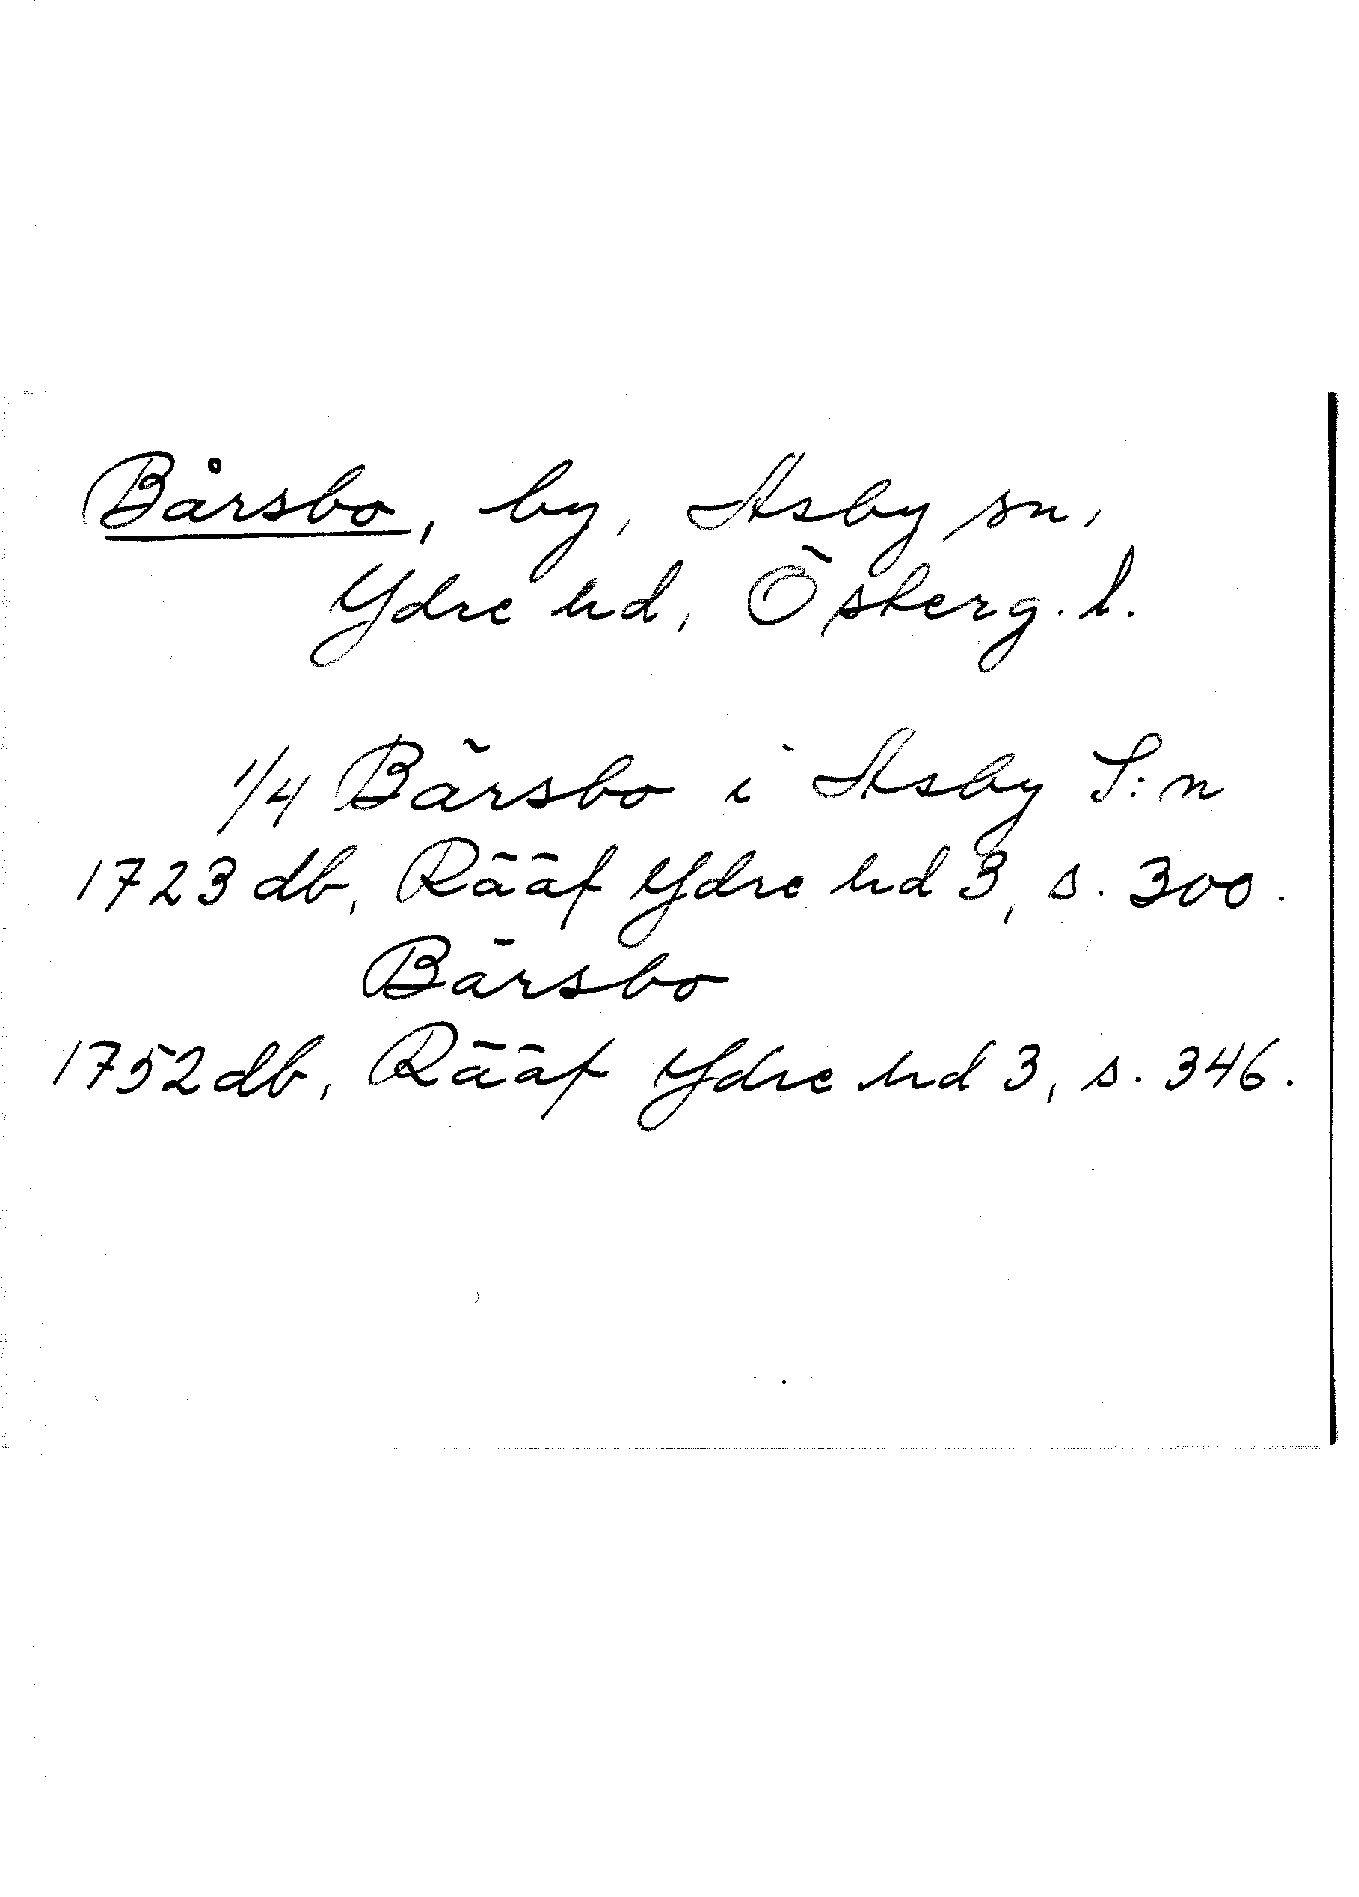 Bårsbo, by, Asby sn,
Ydre hd, Österg. l.
1/4 Bärsbo i Asby S:n
1723 db, Rääf Ydre hd 3, s. 300.
Bärsbo
1752 db, Rääf Ydre hd 3, s. 346.